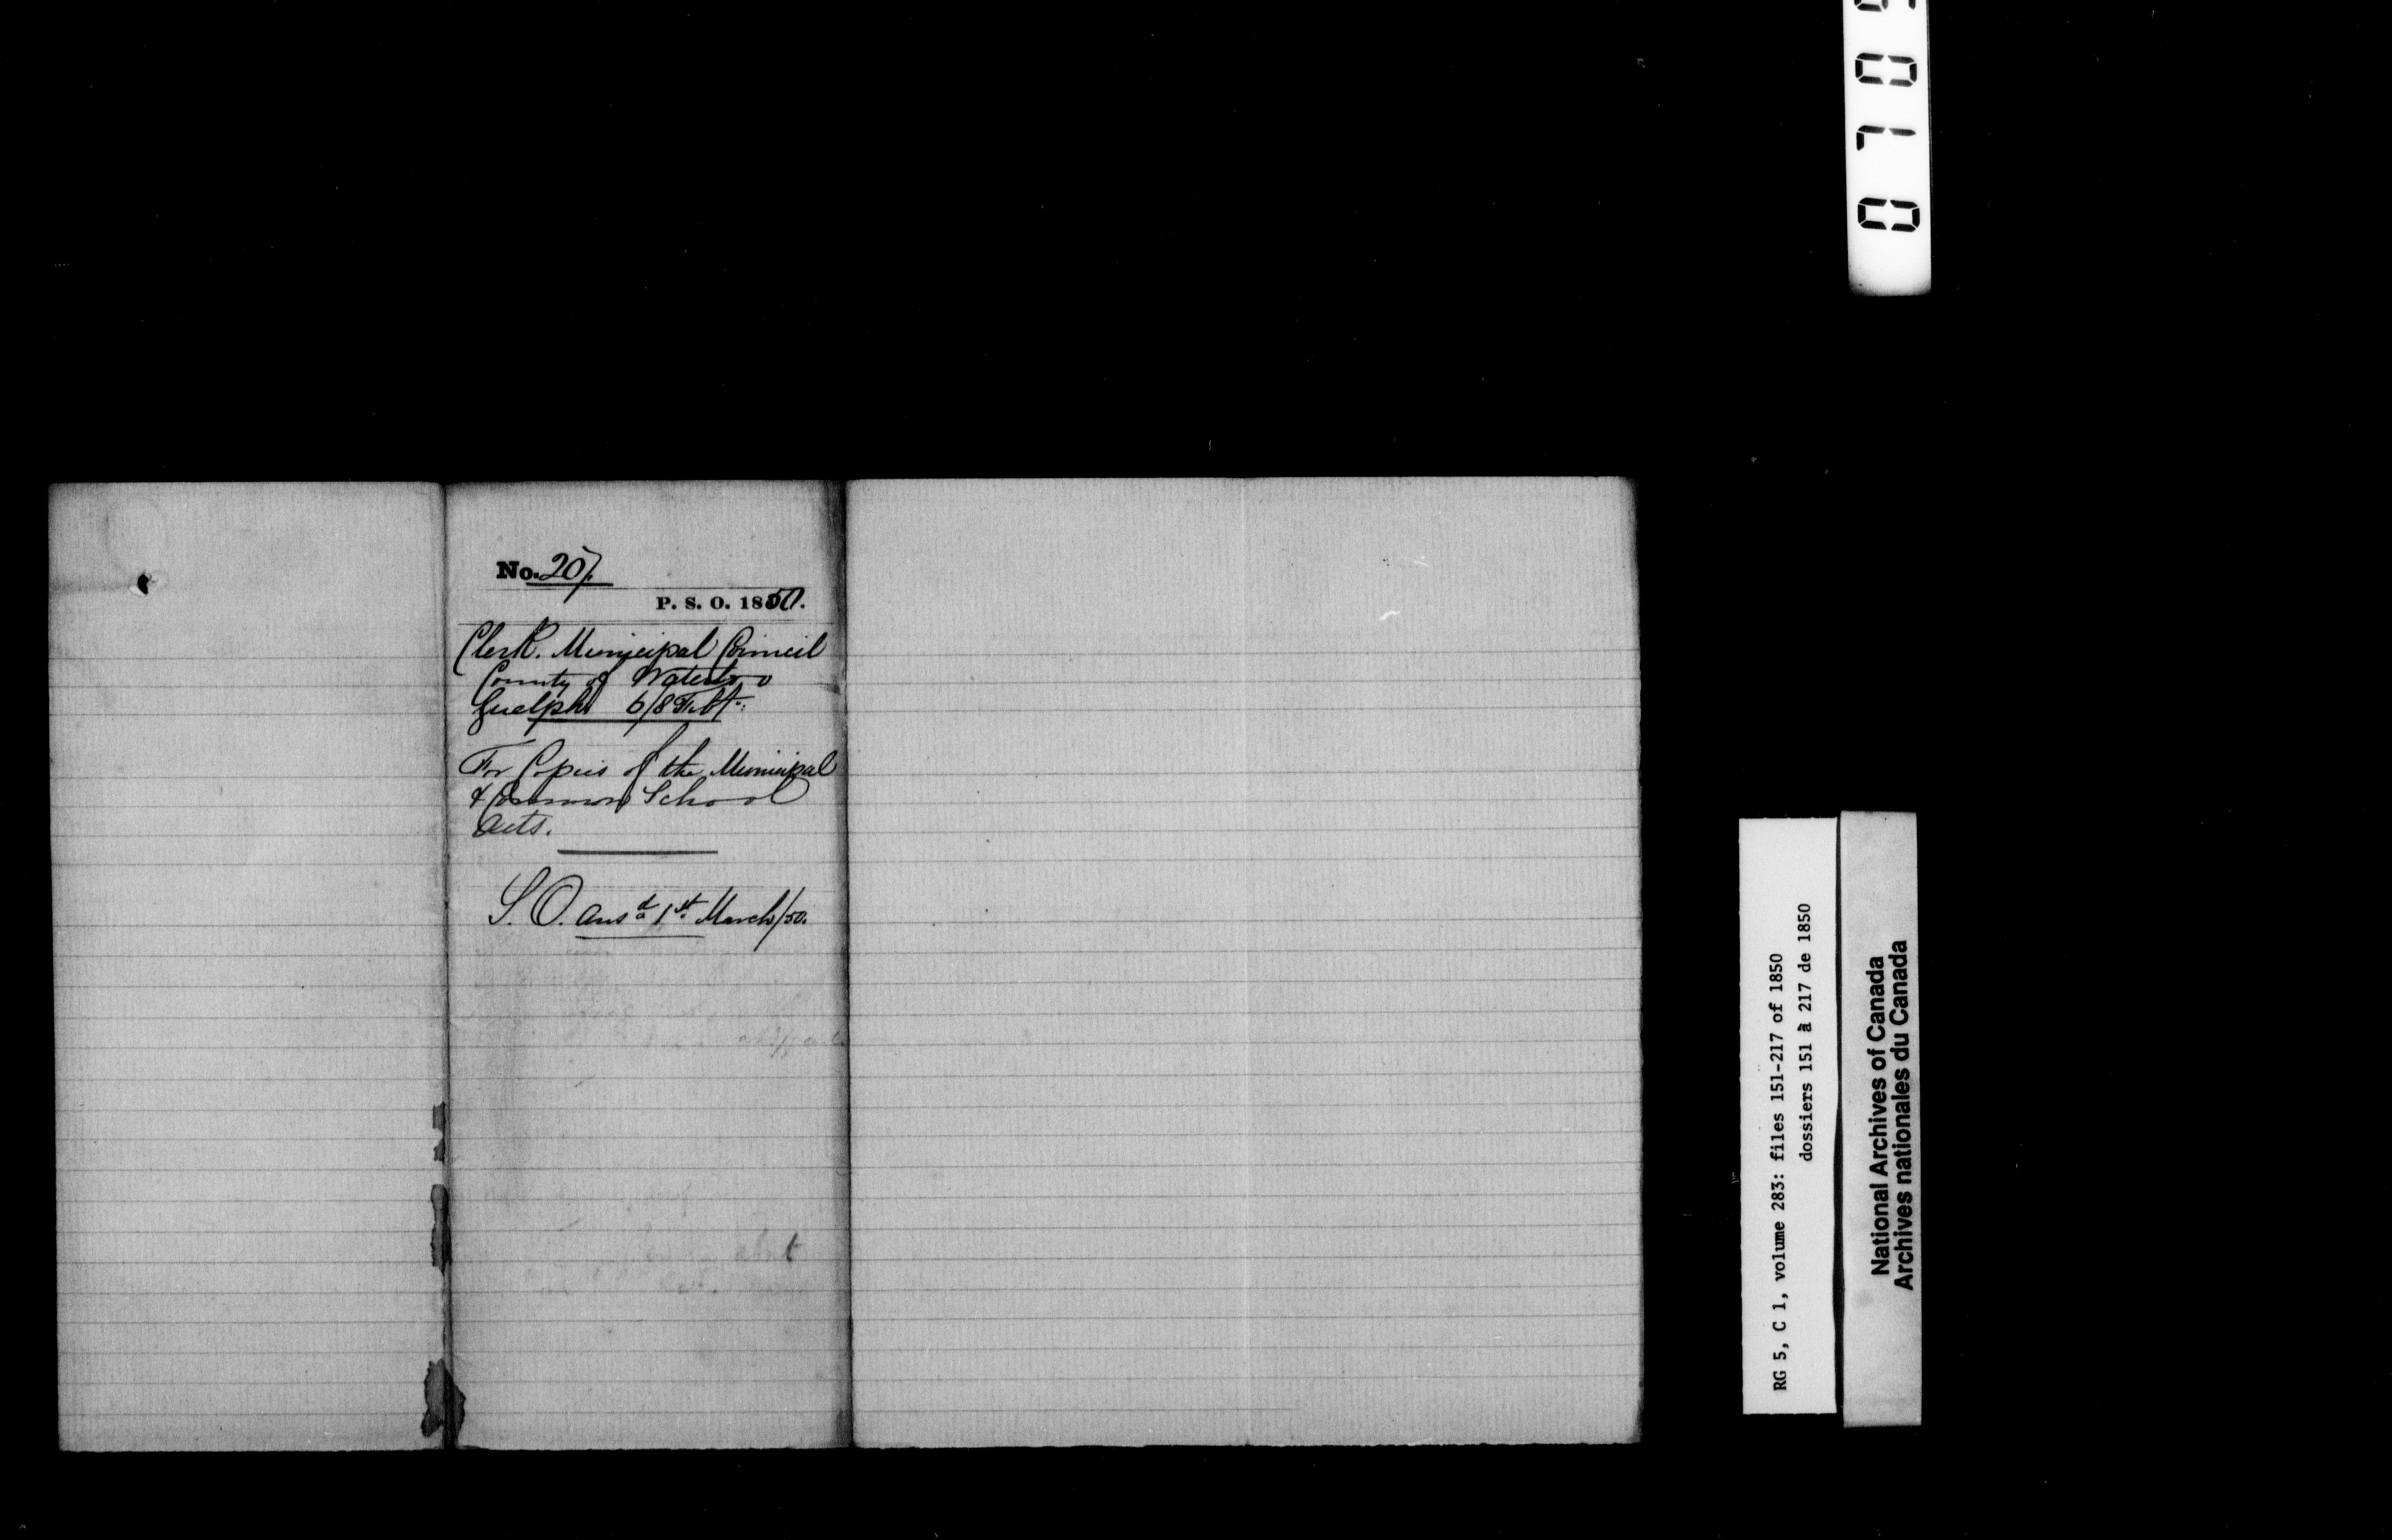 No. 207.
P. S. O. 1850.
Clerk. Municipal Council
County of Waterloo
Guelph 6/8 Feby.
For Copies of the Municipal
& Common School
Acts.
S. O. ansd 1st March/50.
RG 5, C 1, volume 283: files 151-217 of 1850
dossiers 151 à 217 de 1850
National Archives of Canada
Archives nationales du Canada